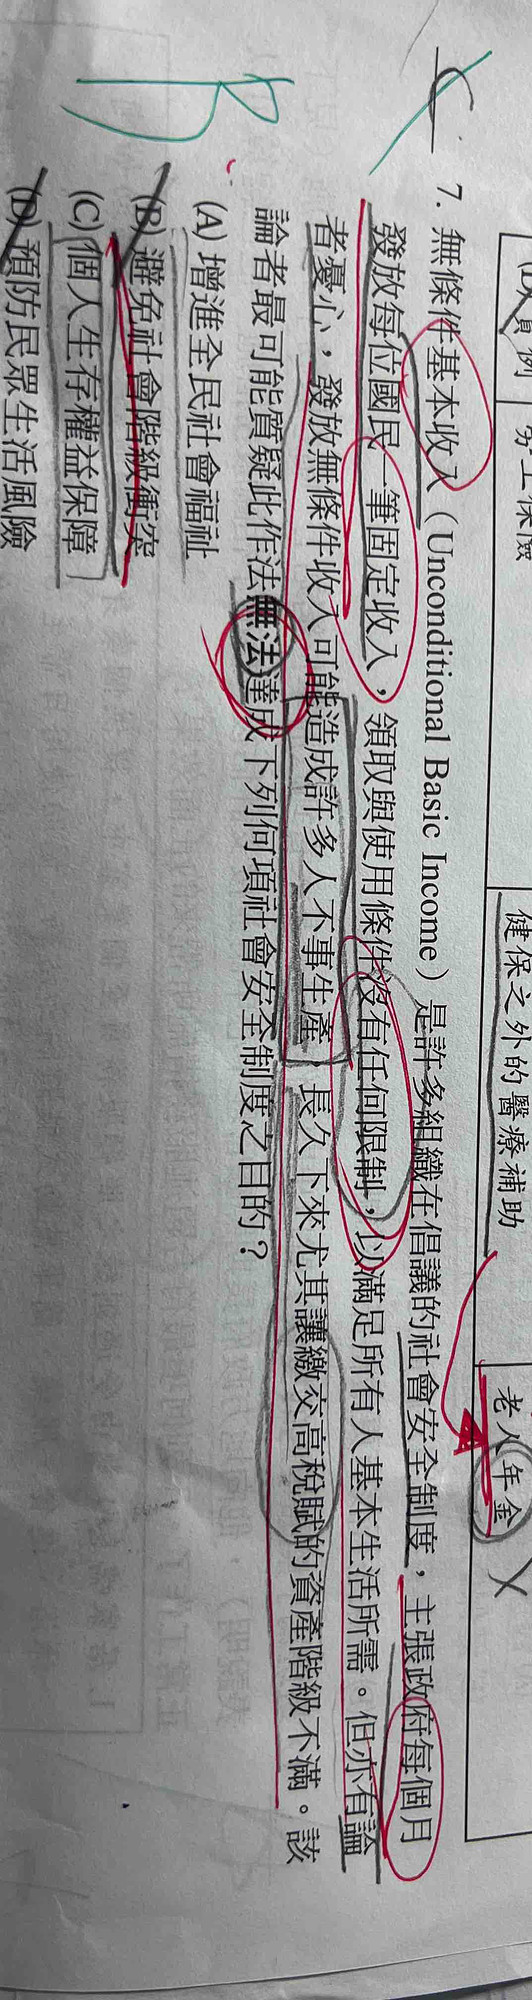 勞工保險
健保之外的醫療補助
老人年金 X
C
B
7. 無條件基本收入（Unconditional Basic Income）是許多組織在倡議的社會安全制度，主張政府每個月
發放每位國民一筆固定收入，領取與使用條件沒有任何限制，以滿足所有人基本生活所需。但亦有論
者憂心，發放無條件收入可能造成許多人不事生產，長久下來尤其讓繳交高稅賦的資產階級不滿。該
論者最可能質疑此作法無法達成下列何項社會安全制度之目的？
(A) 增進全民社會福祉
(B) 避免社會階級衝突
(C) 個人生存權益保障
(D) 預防民眾生活風險